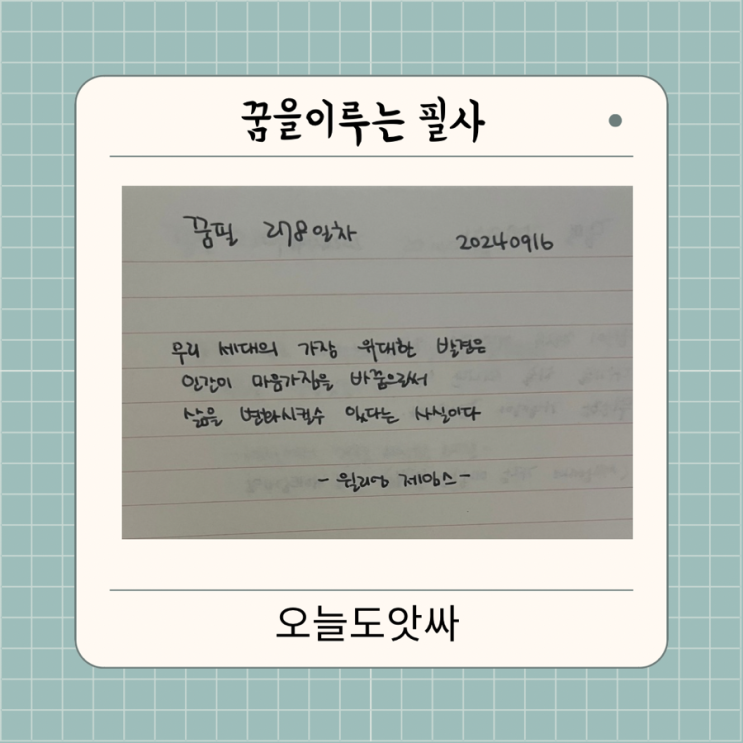 꿈을이루는 필사
꿈필 278일차
20240916
우리 세대의 가장 위대한 발견은
인간이 마음가짐을 바꿈으로써
삶을 변화시킬수 있다는 사실이다
- 윌리엄 제임스 -
오늘도앗싸